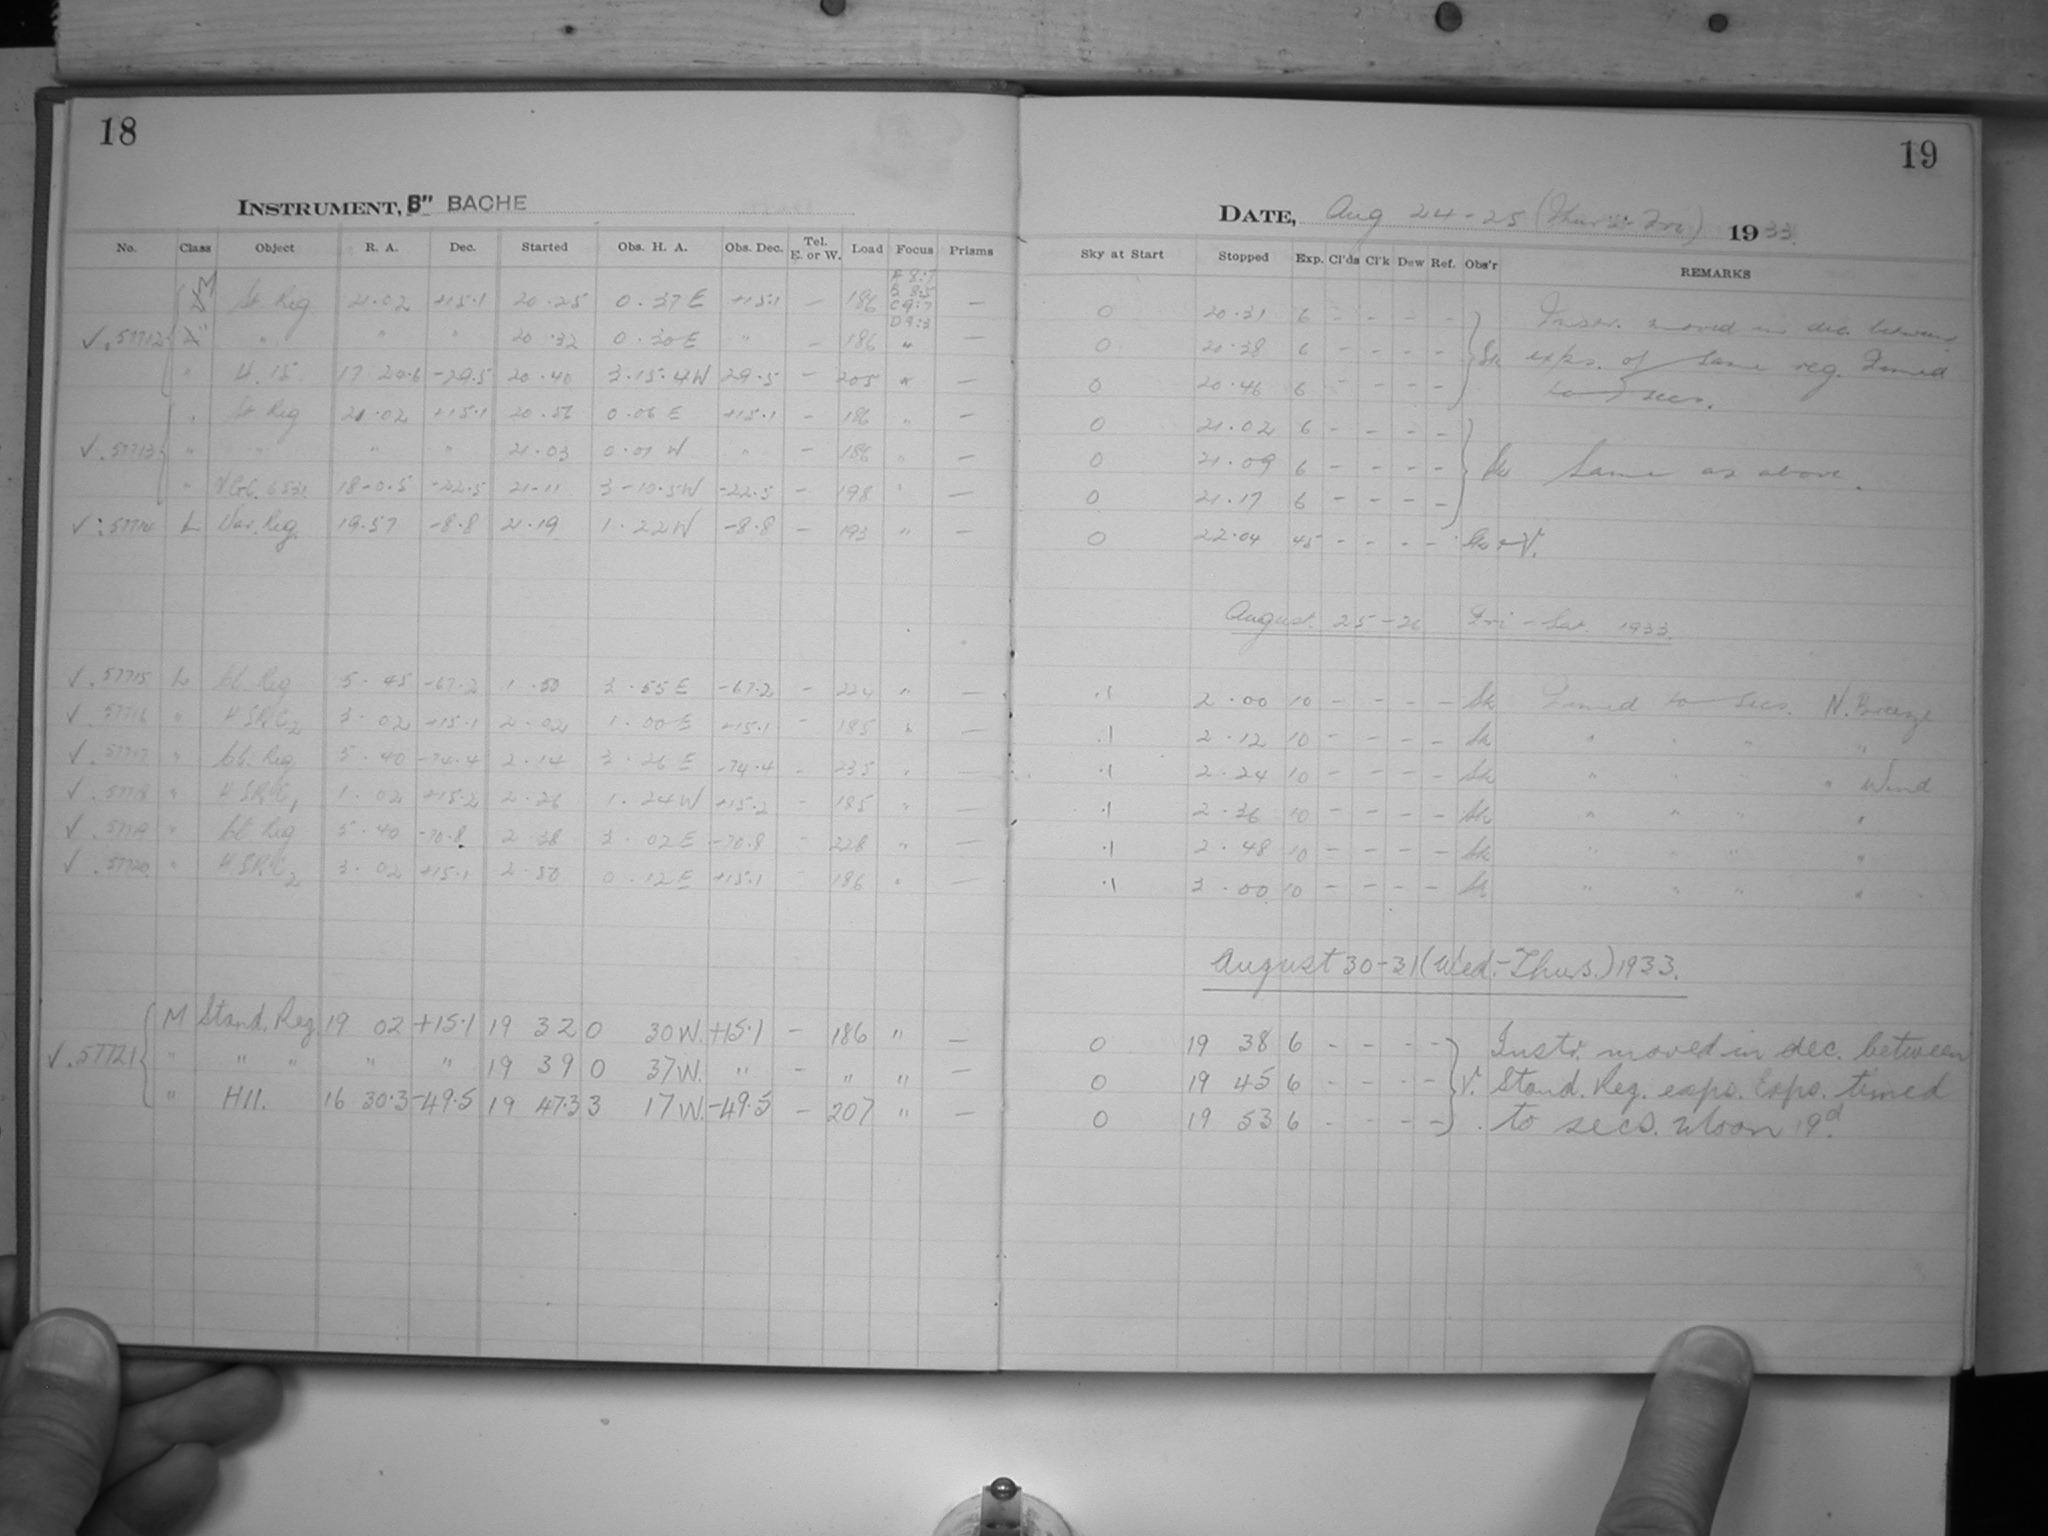 18
INSTRUMENT, 8" BACHE
No. Class Object R. A. Dec. Started Obs. H. A. Obs. Dec. Tel. E. or W. Load Focus Prisms
A 8:7
B 8:5
C 9:7
D 9:3
M St Reg 21.02 +15.1 20.25 0.37 E +15.1 – 186 –
✓.57712 " " " 20.32 0.30 E " – 186 " –
" H.15 17 20.6 -29.5 20.40 3.15.4W 29.5 – 205 " –
" St Reg 21.02 +15.1 20.56 0.06 E +15.1 – 186 " –
✓.57713 " " " " 21.03 0.01 W " – 186 " –
" NGC. 6531 18-0.5 -22.5 21-11 3-10.5W -22.5 – 198 " –
✓:57714 L Var. Reg. 19.57 -8.8 21.19 1.22W -8.8 – 193 " –
✓.57715 L Reg 5.45 -67.2 1.50 3.55 E -67.2 – 224 " –
✓.57716 " 3.02 +15.1 2.02 1.00 E +15.1 – 185 " –
✓.57717 " Reg 5.40 -74.4 2.14 3.26 E -74.4 – 235 " –
✓.57718 " 1.02 +15.2 2.26 1.24W +15.2 – 185 " –
✓.57719 " Reg 5.40 -70.8 2.38 3.02 E -70.8 – 228 " –
✓.57720 " 3.02 +15.1 2.50 0.12 E +15.1 – 186 " –
M Stand. Reg 19 02 +15.1 19 32 0 30W. +15.1 – 186 " –
✓.57721 " " " " " 19 39 0 37W. " – " " –
" H11. 16 30.3 -49.5 19 47.3 3 17W. -49.5 – 207 " –
19
DATE, Aug 24-25 (Thur-Fri) 1933.
Sky at Start Stopped Exp. Cl'ds Cl'k Dew Ref. Obs'r REMARKS
0 20.31 6 – – – – Instr. moved in dec. between
0 20.38 6 – – – – Sk exps. of same reg. Timed
0 20.46 6 – – – – to secs.
0 21.02 6 – – – –
0 21.09 6 – – – – Sk Same as above.
0 21.17 6 – – – –
0 22.04 45 – – – – Sk & V.
August 25-26 Fri-Sat. 1933.
.1 2.00 10 – – – – Sk Timed to secs. N. Breeze
.1 2.12 10 – – – – Sk " " " "
.1 2.24 10 – – – – Sk " " " " Wind
.1 2.36 10 – – – – Sk " " " "
.1 2.48 10 – – – – Sk " " " "
.1 3.00 10 – – – – Sk " " " "
August 30-31 (Wed.-Thurs.) 1933.
0 19 38 6 – – – – Instr. moved in dec. between
0 19 45 6 – – – – V. Stand. Reg. exps. Exps. timed
0 19 53 6 – – – – to secs. Moon 19d.